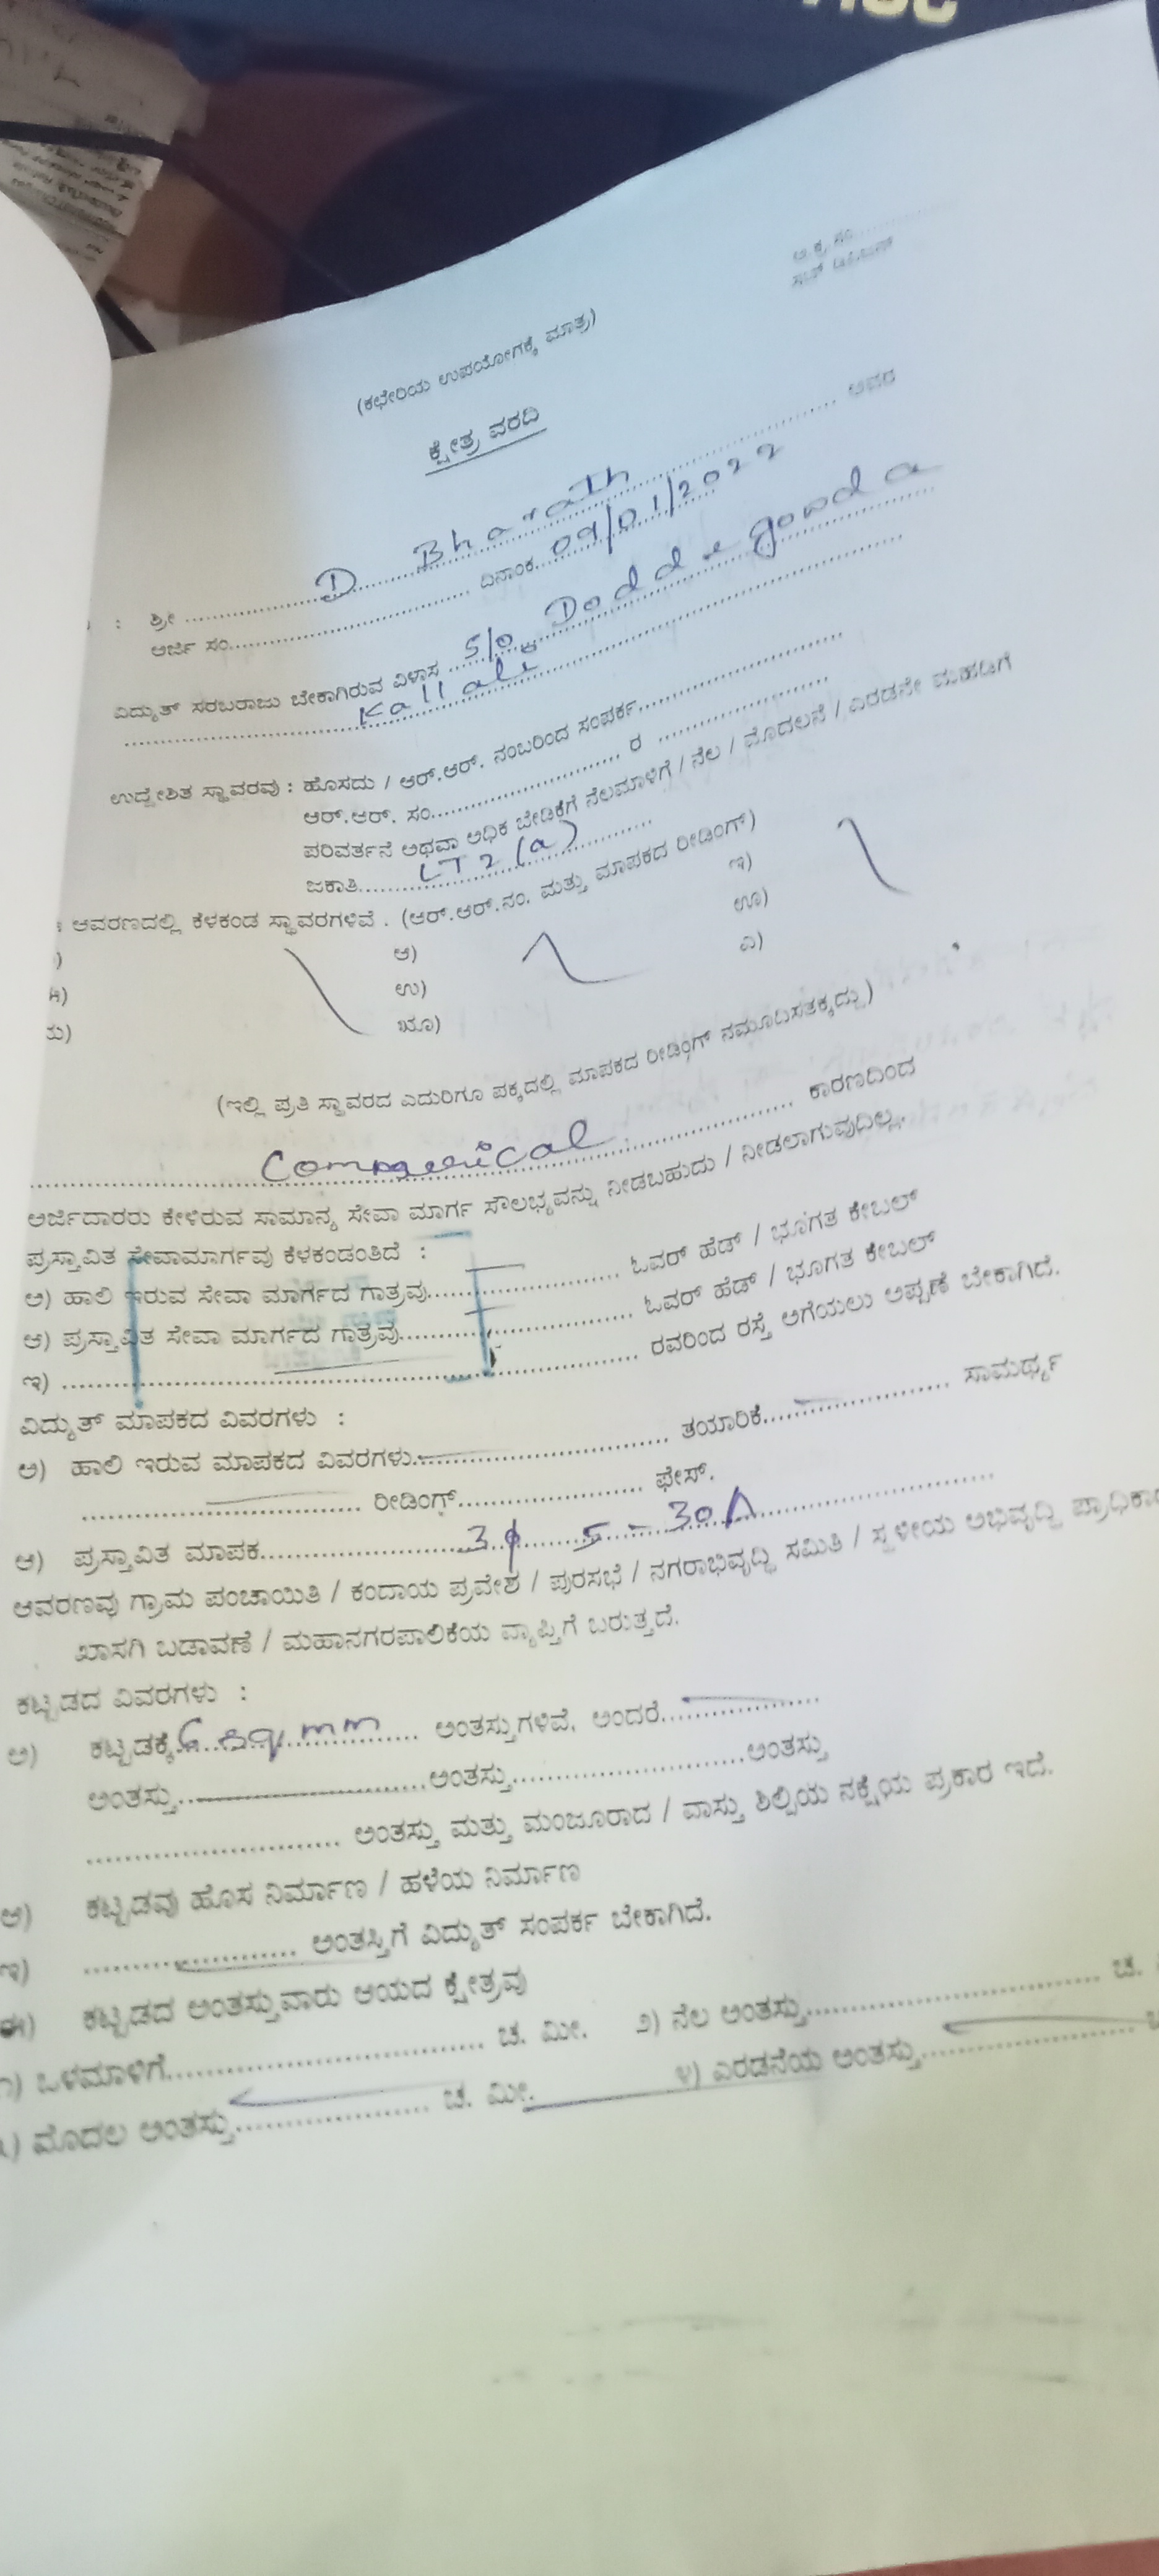 (ಕಛೇರಿಯ ಉಪಯೋಗಕ್ಕೆ ಮಾತ್ರ)
ಕ್ಷೇತ್ರ ವರದಿ
: ಶ್ರೀ .......... D Bharath .......... ಅವರ
ಅರ್ಜಿ ಸಂ.......... ದಿನಾಂಕ..........
ವಿದ್ಯುತ್ ಸರಬರಾಜು ಬೇಕಾಗಿರುವ ವಿಳಾಸ .... S/o Doddegowda
..........
ಉದ್ದೇಶಿತ ಸ್ಥಾವರವು : ಹೊಸದು / ಆರ್.ಆರ್. ನಂಬರಿಂದ ಸಂಪರ್ಕ..........
ಆರ್.ಆರ್. ಸಂ.......... ರ ..........
ಪರಿವರ್ತನೆ ಅಥವಾ ಅಧಿಕ ಬೇಡಿಕೆಗೆ ನೆಲಮಾಳಿಗೆ / ನೆಲ / ಮೊದಲನೆ / ಎರಡನೇ ಮಹಡಿಗೆ
ಜಕಾತಿ.......... LT 2 (a) ..........
: ಆವರಣದಲ್ಲಿ ಕೆಳಕಂಡ ಸ್ಥಾವರಗಳಿವೆ . (ಆರ್.ಆರ್.ನಂ. ಮತ್ತು ಮಾಪಕದ ರೀಡಿಂಗ್)
ಆ) ಇ)
ಉ) ಊ)
ಋೂ) ಎ)
(ಇಲ್ಲಿ ಪ್ರತಿ ಸ್ಥಾವರದ ಎದುರಿಗೂ ಪಕ್ಕದಲ್ಲಿ ಮಾಪಕದ ರೀಡಿಂಗ್ ನಮೂದಿಸತಕ್ಕದ್ದು)
.......... ಕಾರಣದಿಂದ
ಅರ್ಜಿದಾರರು ಕೇಳಿರುವ ಸಾಮಾನ್ಯ ಸೇವಾ ಮಾರ್ಗ ಸೌಲಭ್ಯವನ್ನು ನೀಡಬಹುದು / ನೀಡಲಾಗುವುದಿಲ್ಲ.
ಪ್ರಸ್ತಾವಿತ ಸೇವಾಮಾರ್ಗವು ಕೆಳಕಂಡಂತಿದೆ :
ಅ) ಹಾಲಿ ಇರುವ ಸೇವಾ ಮಾರ್ಗದ ಗಾತ್ರವು.......... ಓವರ್ ಹೆಡ್ / ಭೂಗತ ಕೇಬಲ್
ಆ) ಪ್ರಸ್ತಾವಿತ ಸೇವಾ ಮಾರ್ಗದ ಗಾತ್ರವು.......... ಓವರ್ ಹೆಡ್ / ಭೂಗತ ಕೇಬಲ್
ಇ) .......... ರವರಿಂದ ರಸ್ತೆ ಅಗೆಯಲು ಅಪ್ಪಣೆ ಬೇಕಾಗಿದೆ.
ವಿದ್ಯುತ್ ಮಾಪಕದ ವಿವರಗಳು :
ಅ) ಹಾಲಿ ಇರುವ ಮಾಪಕದ ವಿವರಗಳು.......... ತಯಾರಿಕೆ.......... ಸಾಮರ್ಥ್ಯ
.......... ರೀಡಿಂಗ್.......... ಫೇಸ್.
ಆ) ಪ್ರಸ್ತಾವಿತ ಮಾಪಕ.......... 3φ 5 - 30A ..........
ಆವರಣವು ಗ್ರಾಮ ಪಂಚಾಯಿತಿ / ಕಂದಾಯ ಪ್ರವೇಶ / ಪುರಸಭೆ / ನಗರಾಭಿವೃದ್ಧಿ ಸಮಿತಿ / ಸ್ಥಳೀಯ ಅಭಿವೃದ್ಧಿ
ಖಾಸಗಿ ಬಡಾವಣೆ / ಮಹಾನಗರಪಾಲಿಕೆಯ ವ್ಯಾಪ್ತಿಗೆ ಬರುತ್ತದೆ.
ಕಟ್ಟಡದ ವಿವರಗಳು :
ಅ) ಕಟ್ಟಡಕ್ಕೆ 6 sq mm ..... ಅಂತಸ್ತುಗಳಿವೆ, ಅಂದರೆ..........
ಅಂತಸ್ತು..........ಅಂತಸ್ತು..........ಅಂತಸ್ತು
.......... ಅಂತಸ್ತು ಮತ್ತು ಮಂಜೂರಾದ / ವಾಸ್ತು ಶಿಲ್ಪಿಯ ನಕ್ಷೆಯ ಪ್ರಕಾರ ಇದೆ.
ಆ) ಕಟ್ಟಡವು ಹೊಸ ನಿರ್ಮಾಣ / ಹಳೆಯ ನಿರ್ಮಾಣ
ಇ) .......... ಅಂತಸ್ತಿಗೆ ವಿದ್ಯುತ್ ಸಂಪರ್ಕ ಬೇಕಾಗಿದೆ.
ಈ) ಕಟ್ಟಡದ ಅಂತಸ್ತುವಾರು ಆಯದ ಕ್ಷೇತ್ರವು
೧) ಒಳಮಾಳಿಗೆ.......... ಚ. ಮೀ. ೨) ನೆಲ ಅಂತಸ್ತು.......... ಚ.
ಮೊದಲ ಅಂತಸ್ತು.......... ಚ. ಮೀ. ೪) ಎರಡನೆಯ ಅಂತಸ್ತು..........